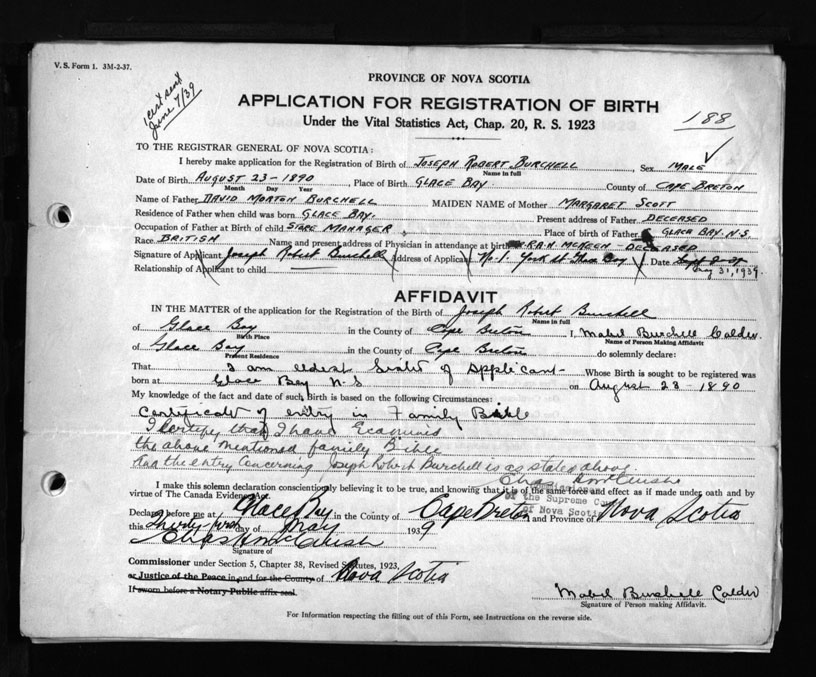 V. S. Form 1. 3M-2-37.
cert sent
June 7/39
PROVINCE OF NOVA SCOTIA
APPLICATION FOR REGISTRATION OF BIRTH
188
Under the Vital Statistics Act, Chap. 20, R. S. 1923
TO THE REGISTRAR GENERAL OF NOVA SCOTIA:
I hereby make application for the Registration of Birth of JOSEPH ROBERT BURCHELL, Sex MALE
Name in full
Date of Birth AUGUST 23-1890, Place of Birth GLACE BAY. County of CAPE BRETON
Month Day Year
Name of Father DAVID MORTON BURCHELL MAIDEN NAME of Mother MARGARET SCOTT
Residence of Father when child was born GLACE BAY. Present address of Father DECEASED
Occupation of Father at Birth of child STORE MANAGER Place of birth of Father GLACE BAY. N.S.
Race BRITISH Name and present address of Physician in attendance at birth R.A.H. McKEEN - DECEASED
Signature of Applicant Joseph Robert Burchell Address of Applicant No. 1 York St Glace Bay Date
May 31, 1939.
Relationship of Applicant to child
AFFIDAVIT
IN THE MATTER of the application for the Registration of the Birth of Joseph Robert Burchell
Name in full
of Glace Bay in the County of Cape Breton I, Mabel Burchell Calder
Birth Place Name of Person Making Affidavit
of Glace Bay in the County of Cape Breton do solemnly declare:
Present Residence
That I am eldest Sister of applicant Whose Birth is sought to be registered was
born at Glace Bay N.S on August 23-1890
My knowledge of the fact and date of such Birth is based on the following Circumstances:
Certificate of entry in Family Bible
I certify that I have Examined
the above mentioned family Bible
and the entry concerning Joseph Robert Burchell is as stated above
Chas
I make this solemn declaration conscientiously believing it to be true, and knowing that it is of the same force and effect as if made under oath and by
virtue of The Canada Evidence Act.
of the Supreme Court
of Nova Scotia
Declared before me at Glace Bay in the County of Cape Breton and Province of Nova Scotia
this Thirty-first day of May 1939
Signature of
Commissioner under Section 5, Chapter 38, Revised Statutes, 1923,
or Justice of the Peace in and for the County of Nova Scotia
If sworn before a Notary Public affix seal.
Mabel Burchell Calder
Signature of Person making Affidavit.
For Information respecting the filling out of this Form, see Instructions on the reverse side.